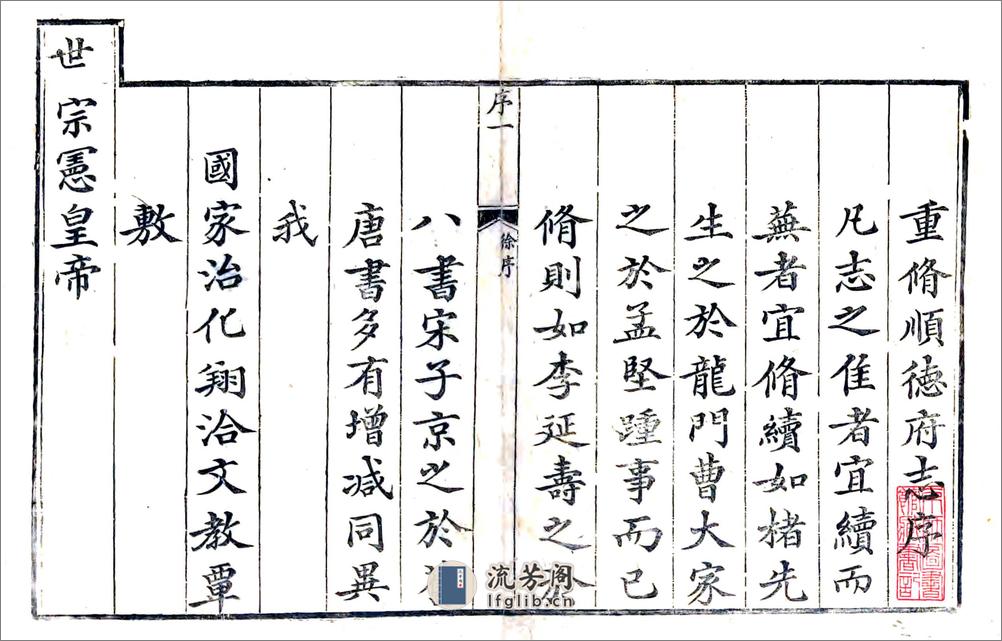 重脩順徳府志序
凡志之佳者宜續而
蕪者宜脩續如褚先
生之於龍門曹大家
之於孟堅踵事而已
脩則如李延壽之
序一
徐序
八書宋子京之於
唐書多有增减同異
我
國家治化翔洽文教覃
敷
世宗憲皇帝
流芳阁
lfglib.cn